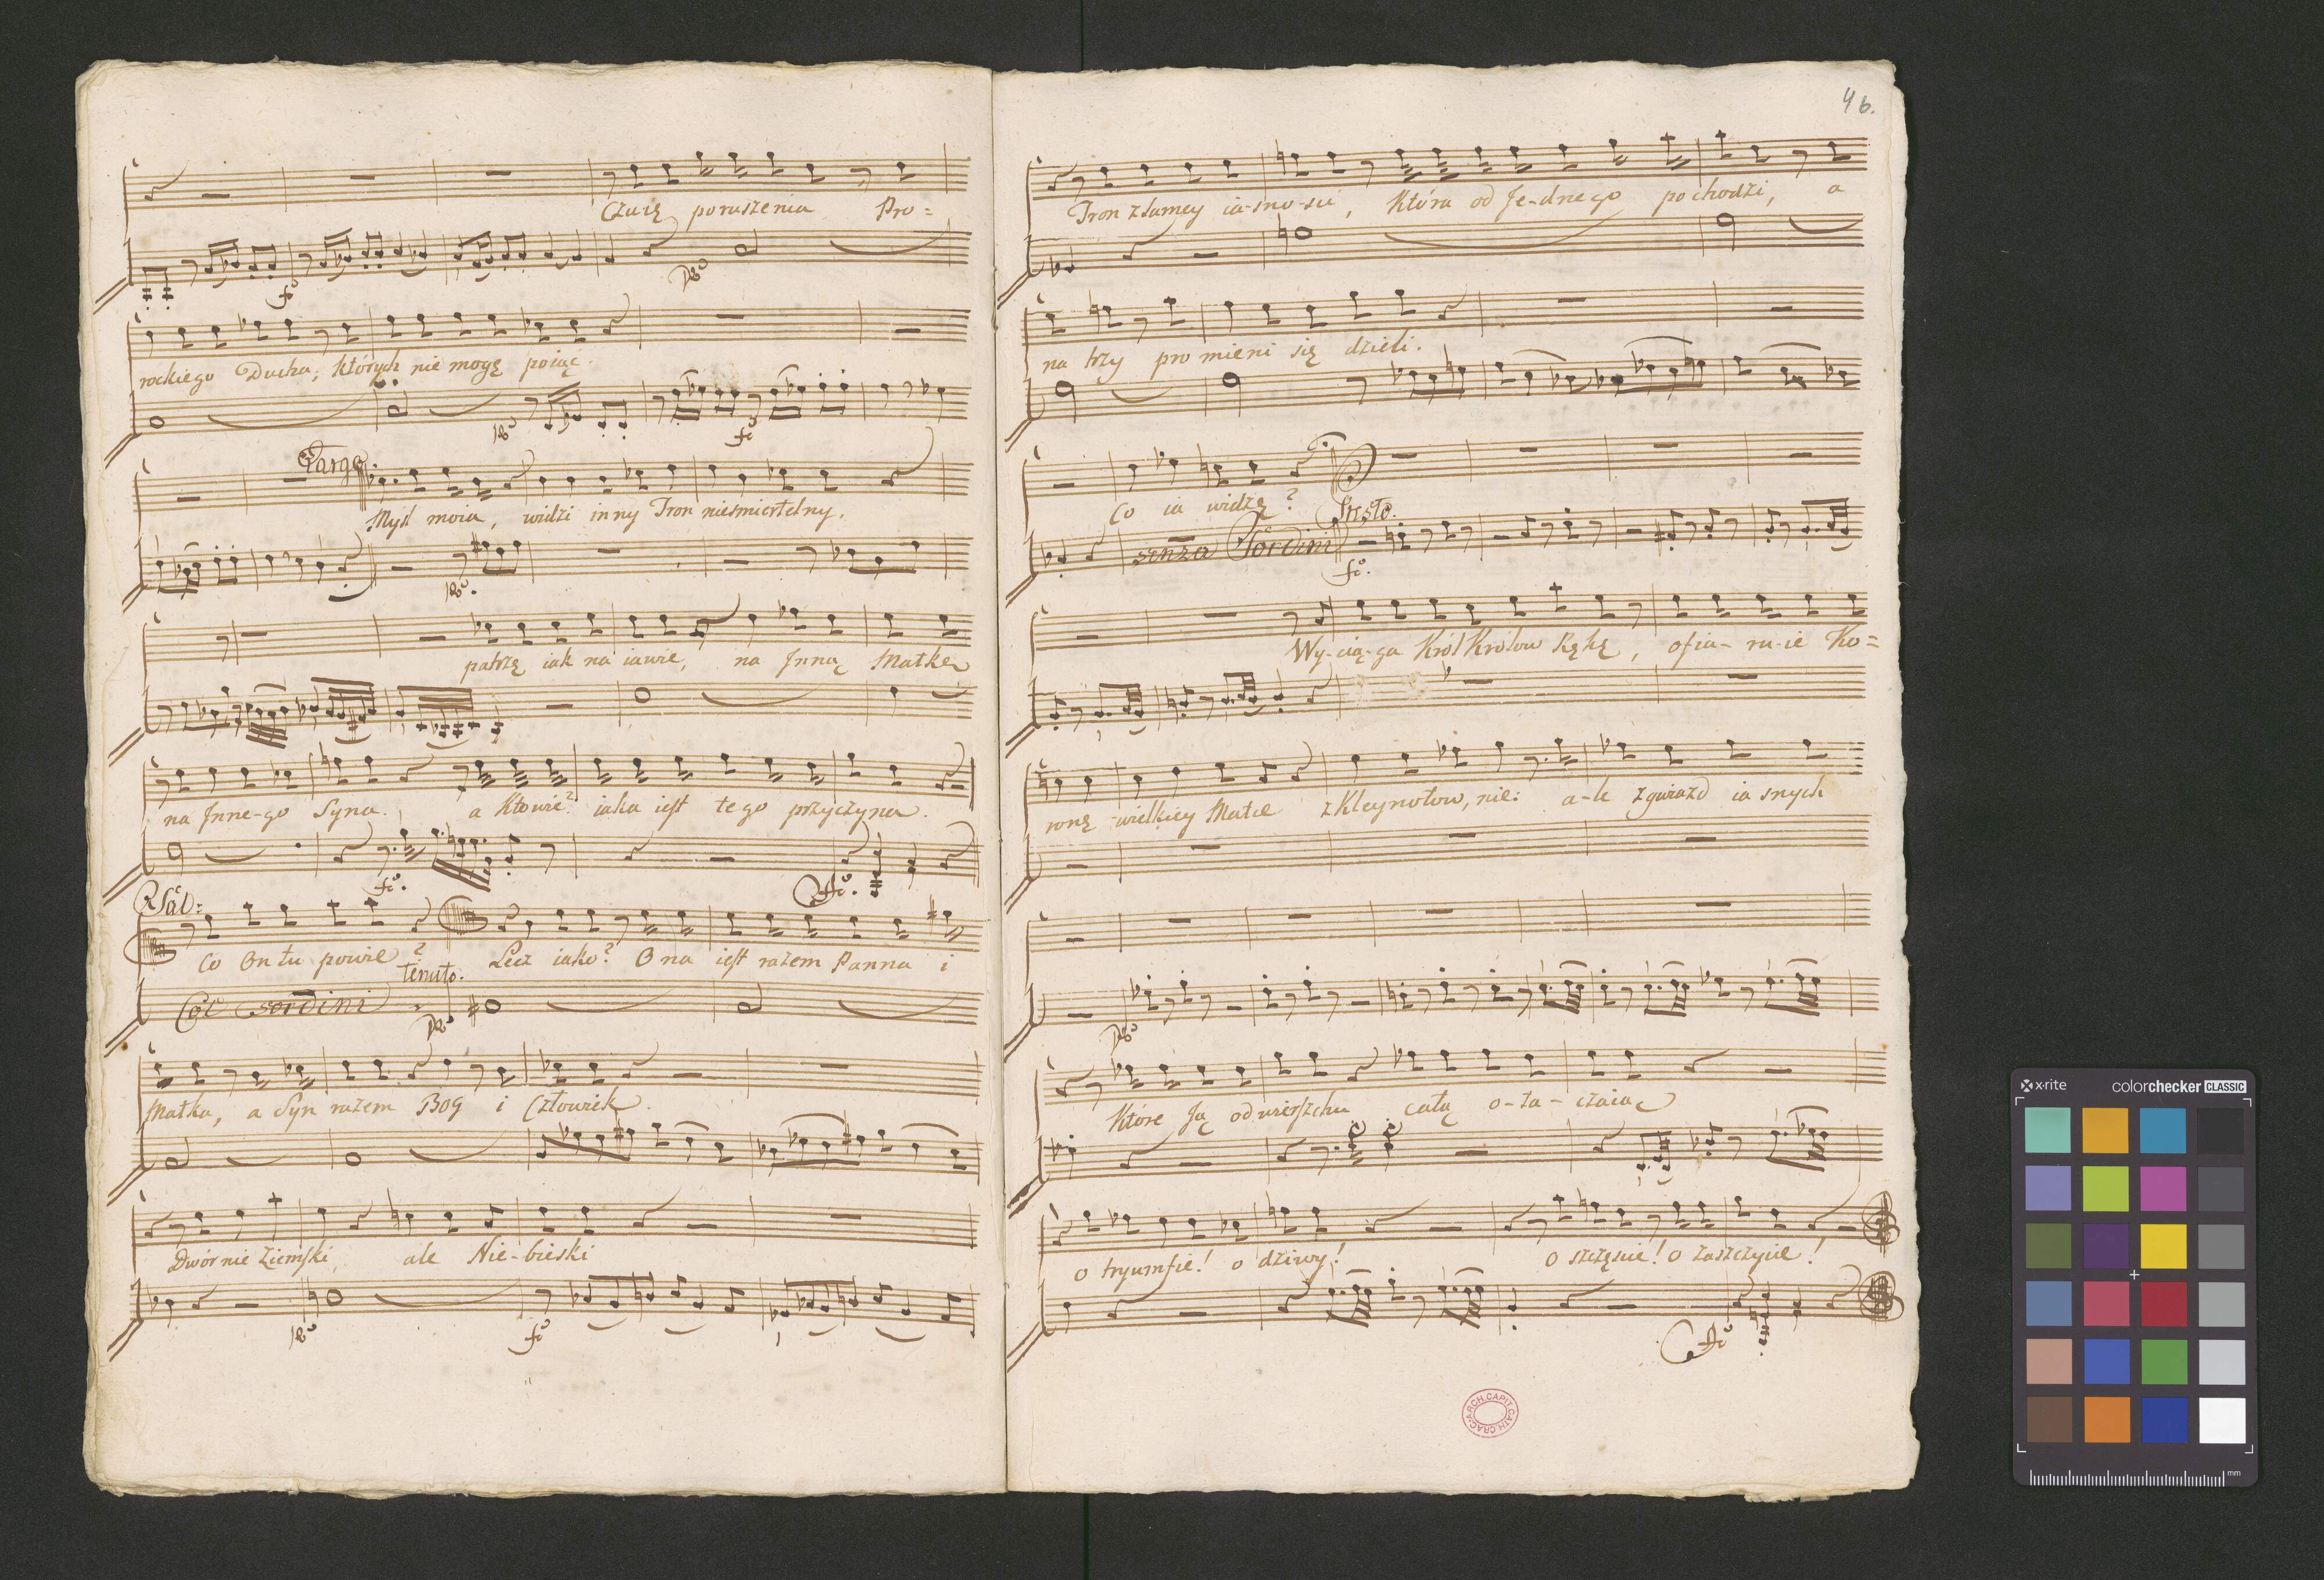 Czuię poruszenia Pro=
fo
po
rockiego Ducha, których nie mogę poiąc.
po
fo
Largo
Mysl moia, widzi inny Tron niesmiertelny.
po.
patrzę iak na iawie, na Inną Matkę
na Inne-go Syna. a Ktowie? iaka iest tego przyczyna.
fo.
ffo.
Co On tu powie? Lecz iako? Ona iest razem Panna i
tenuto.
Col sordini
po
Matka, a Syn razem Bog i Człowiek.
Dwór nie Ziemski, ale Nie-bieski
po
fo
46.
Tron zsamey ia-sno-sci, Która od Je-dnego pochodzi, a
na trzy promieni się dzieli.
Co ia widzę? Presto.
senza Sordini
fo.
Wy-cią-ga Król Krolow Rękę, ofia-ru-ie Ko=
ronę wielkiey Matce z Kleynotow, nie: a-le z gwiazd ia snych
po
Które Ją odwierszchu całą o-ta-czaią
o tryumfie! o dziwy! o szczęscie! o zaszczycie!
ffo
ARCH. CAPIT. CATH. CRAC.
x-rite
colorchecker CLASSIC
mm